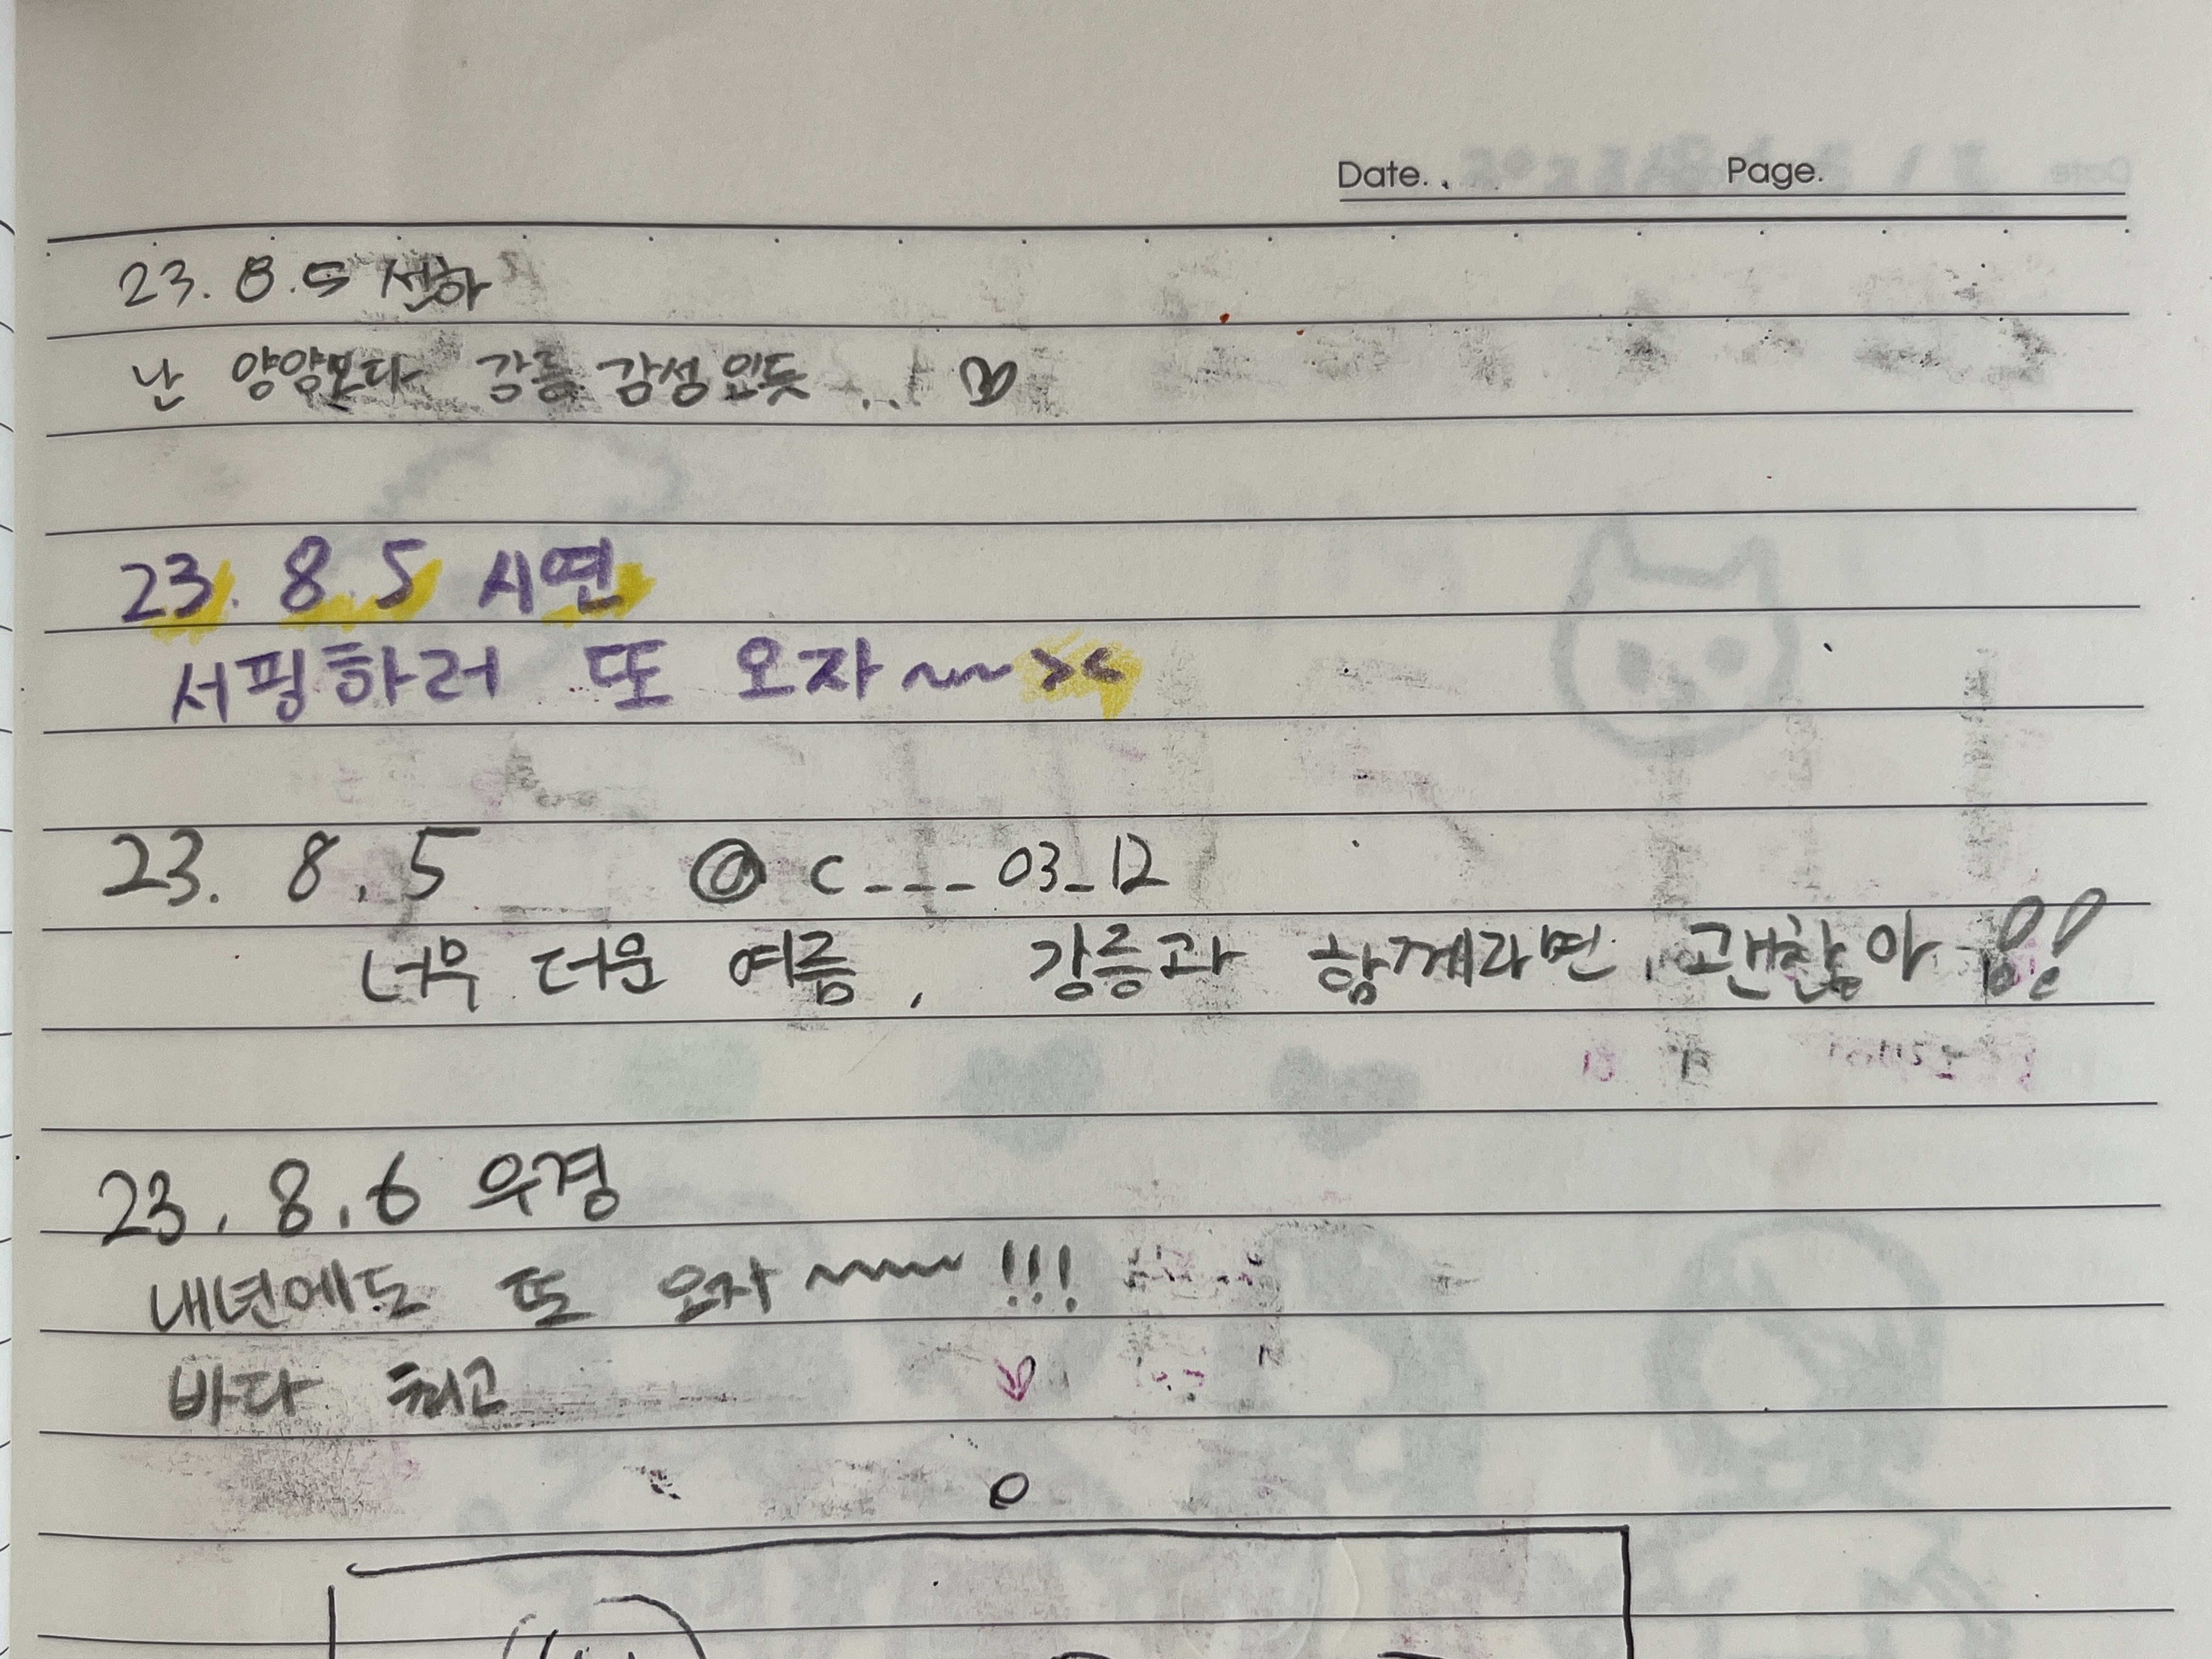 Date. Page.
23. 8. 5 선하
난 양양보다 강릉 감성인듯 .. ♡
23. 8. 5 시연
서핑하러 또 오자~~ ><
23. 8. 5 @ c____03_12
너무 더운 여름, 강릉과 함께라면, 괜찮아 !!
23. 8. 6 우경
내년에도 또 오자~~~ !!!
바다 최고